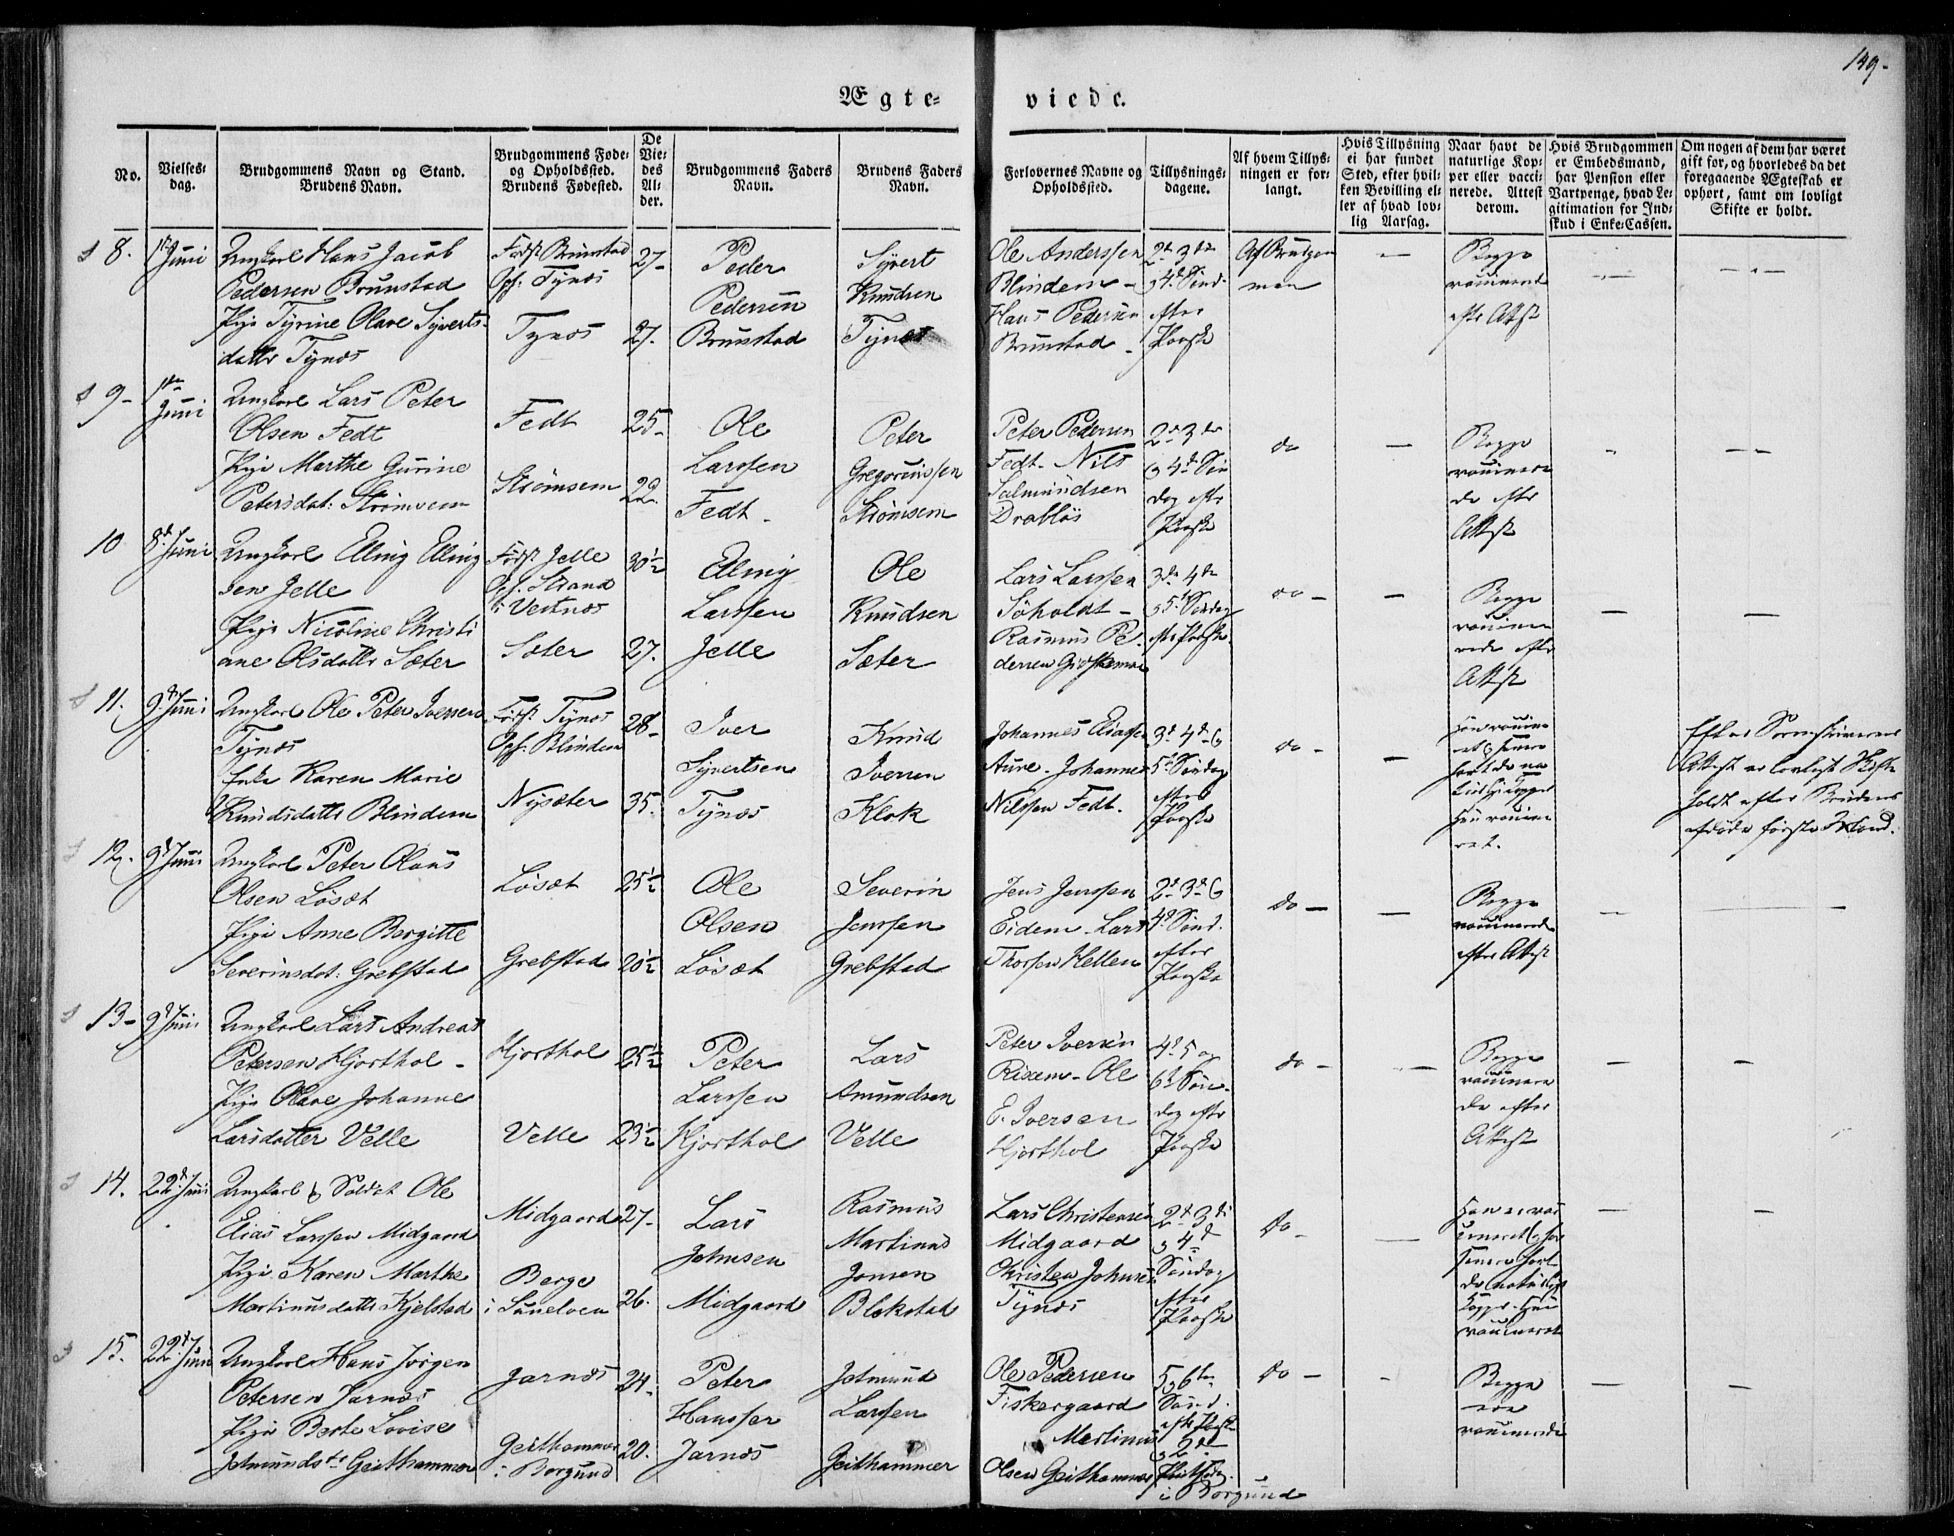 149.
Ægte-
viede.
No.
Vielses-
dag.
Brudgommens Navn og Stand.
Brudens Navn.
Brudgommens Føde-
og Opholdssted.
Brudens Fødested.
De
Vie-
des
Al-
der.
Brudgommens Faders
Navn.
Brudens Faders
Navn.
Forlovernes Navne og
Opholdssted.
Tillysnings-
dagene.
Af hvem Tillys-
ningen er for-
langt.
Hvis Tillysning
ei har fundet
Sted, efter hvil-
ken Bevilling el-
ler af hvad lov-
lig Aarsag.
Naar havt de
naturlige Kop-
per eller vacci-
nerede. Attest
derom.
Hvis Brudgommen
er Embedsmand,
har Pension eller
Vartpenge, hvad Le-
gitimation for Ind-
skud i Enke-Cassen.
Om nogen af dem har været
gift før, og hvorledes da det
foregaaende Ægteskab er
ophørt, samt om lovligt
Skifte er holdt.
8.
1ste Juni
Ungkarl Hans Jacob
Pedersen Brunstad
Pige Tyrine Olave Syverts-
datter Tynæs
Føds. Brunstad
Oph. Tynæs
Tynæs
27-
27.
Peder
Pedersen
Brunstad
Syvert
Knudsen
Tynæs
Ole Anderssen
Blindem -
Hans Pedersen
Brunstad -
2de 3die
4de Sønd.
efter
Paaske
Af Brudgom
men
Begge
vaccinerede
efter Attest
9-
1ste Juni
Ungkarl Lars Peter
Olsen Fedt
Pige Marthe Gurine
Petersdat: Strømsem
Fedt
Strømsem
25-
22.
Ole
Larssen
Fedt -
Peter
Gregoriussen
Strømsem
Peter Pedersen
Fedt - Nils
Salmundsen
Drabløs
2de 3die
og 4de Søn
dag efter
Paaske
do
Begge
vaccinere
de efter
Attest
10
8de Juni
Ungkarl Elling Elling
sen Jelle
Pige Nicoline Christi
ane Olsdatter Sæter
Føds. Jelle
Oph. Strand
i Vestnæs
Sæter
30½
27.
Elling
Larssen
Jelle
Ole
Knudsen
Sæter
Lars Larssen
Søholdt -
Rasmus Pe-
dersen
3die 4de
og 5te Søndag
efter Paaske.
do -
Begge
vaccine
rede efter
Attest
11.
9de Juni
Ungkarl Ole Peter Iversen
Tynæs
Enke Karen Marie
Knudsdatter Blindem
Føds. Tynæs
Oph. Blindem
Nysæter
28-
35.
Iver
Syvertsen
Tynæs
Knud
Iversen
Klok
Johannes Eliassen
Aure - Johannes
Nilssen Fedt.
3de 4de og
5te Søndag
efter
Paaske
do -
Efter Sorenskriverens
Attest er lovligt Skifte
holdt efter Brudens
afdøde første Mand.
12.
9de Juni
Ungkarl Peter Olaus
Olsen Løsæt
Pige Anne Bergitte
Severinsdat: Grebstad
Løsæt
Grebstad
25½
20½
Ole
Olsen
Løsæt
Severin
Jenssen
Grebstad
Jens Jenssen
Eidem - Lars
Thorsen Hellen
2de 3de og
4de Sønd.
efter
Paaske
do -
Begge
vaccinerede
efter Attest
13-
9de Juni
Ungkarl Lars Andreas
Petersen Hjorthol -
Pige Olave Johanne
Larsdatter Velle
Hjorthol
Velle
25½
23½
Peter
Larssen
Hjorthol
Lars
Amundsen
Velle
Peter Iversen
Riksem - Ole
E. Iversen
Hjorthol
4de 5 og
6te Søn-
dag efter
Paaske
do -
Begge
vaccinere
de efter
Attest
14.
22de Juni
Ungkarl & Soldat Ole
Elias Larssen Midgaard
Pige Karen Marthe
Martinusdatter Kjelstad
Midgaard
Berge
i Sunelven
27-
26.
Lars
Johnsen
Midgaard
Rasmus
Martinus
Jonsen
Blekstad
Lars Christensen
Midgaard
Christen Johnsen
Tynæs
2de 3die
og 4de
Søndag
efter
Paaske
do -
15.
22de Juni
Ungkarl Hans Jørgen
Petersen Jarnæs
Pige Berte Lovise
Jetmundsdtr Geithammer
Jarnæs
Geithammer
i Borgund
24-
20.
Peter
Hanssen
Jarnæs
Jetmund
Larssen
Geithammer
Ole Pedersen
Fiskergaard
Martinus
Olsen Geithammer
5 og 6te
Sønd.
efter Paaske
og 2den
i Borgund
do -
Begge
ere
vaccinerede